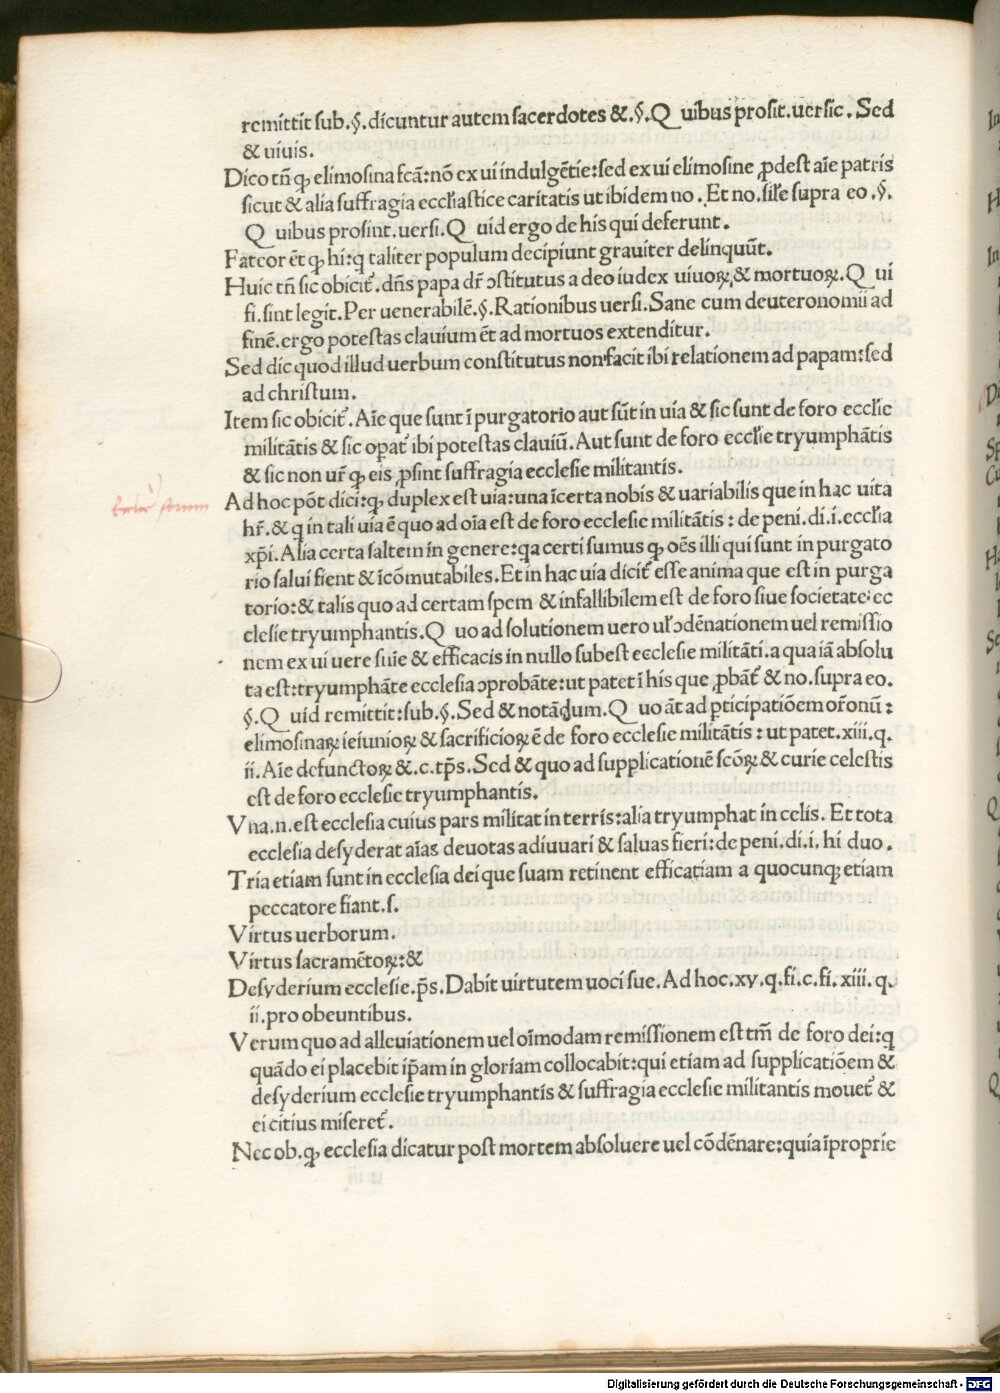 remittit sub.§.dicuntur autem sacerdotes &.§.Q uibus prosit.uersic. Sed
& uiuis.
Dico tñ ꝙ elimosina fcã:nõ ex ui indulgẽtie:sed ex ui elimosine ꝓdest aĩe patris
sicut & alia suffragia ecclĩastice caritatis ut ibidem no. Et no.sił̃e supra eo.§.
Q uibus prosint.uersi.Q uid ergo de his qui deferunt.
Fateor ẽt ꝙ hi:q̃ taliter populum decipiunt grauiter delinquũt.
Huic tñ sic obicit̃. dñs papa dr̃ ↄstitutus a deo iudex uiuoꝝ & mortuoꝝ.Q ui
fi.sint legit.Per uenerabilẽ.§.Rationibus uersi.Sane cum deuteronomii ad
finẽ.ergo potestas clauium ẽt ad mortuos extenditur.
Sed dic quod illud uerbum constitutus non facit ibi relationem ad papam:sed
ad christum.
Item sic obicit̃. Aĩe que sunt ĩ purgatorio aut sũt in uia & sic sunt de foro eccłie
militãtis & sic opat̃ ibi potestas clauiũ. Aut sunt de foro eccłie tryumphãtis
& sic non ur̃ ꝙ eis ꝓsint suffragia ecclesie militantis.
Ad hoc põt dici:ꝙ duplex est uia:una ĩcerta nobis & uariabilis que in hac uita
hr̃.& q̃ in tali uia ẽ quo ad oĩa est de foro ecclesie militãtis : de peni.di.i.eccłia
xp̃i. Alia certa saltem in genere:qa certi sumus ꝙ oẽs illi qui sunt in purgato
rio salui fient & ĩcõmutabiles.Et in hac uia dicit̃ esse anima que est in purga
torio:& talis quo ad certam spem & infallibilem est de foro siue societate: ec
clesie tryumphantis.Q uo ad solutionem uero uł ↄdẽnationem uel remissio
nem ex ui uere suĩe & efficacis in nullo subest ecclesie militãti.a qua iã absolu
ta est:tryumphãte ecclesia ↄprobãte:ut patet ĩ his que ꝓbãt̃ & no.supra eo.
§.Q uid remittit:sub.§.Sed & notãdum.Q uo ãt ad ꝑticipatiõem or̃onũ:
elimosinaꝝ ieiunioꝝ & sacrificioꝝ ẽ de foro ecclesie militãtis : ut patet.xiii.q.
ii.Aĩe defunctoꝝ &.c.tp̃s.Sed & quo ad supplicationẽ scõꝝ & curie celestis
est de foro ecclesie tryumphantis.
Vna.n.est ecclesia cuius pars militat in terris:alia tryumphat in celis. Et tota
ecclesia desyderat aĩas deuotas adiuuari & saluas fieri:de peni.di.i. hi duo.
Tria etiam sunt in ecclesia dei que suam retinent efficatiam a quocunqꝫ etiam
peccatore fiant.s.
Virtus uerborum.
Virtus sacramẽtoꝝ:&
Desyderium ecclesie.p̃s.Dabit uirtutem uoci sue. Ad hoc.xy.q.fi.c.fi.xiii.q.
ii.pro obeuntibus.
Verum quo ad alleuiationem uel oĩmodam remissionem est tm̃ de foro dei:q̃
quãdo ei placebit ip̃am in gloriam collocabit:qui etiam ad supplicatiõem &
desyderium ecclesie tryumphantis & suffragia ecclesie militantis mouet̃ &
ei citius miseret̃.
Nec ob.ꝙ ecclesia dicatur post mortem absoluere uel cõdẽnare:quia ĩproprie
Digitalisierung gefördert durch die Deutsche Forschungsgemeinschaft - DFG